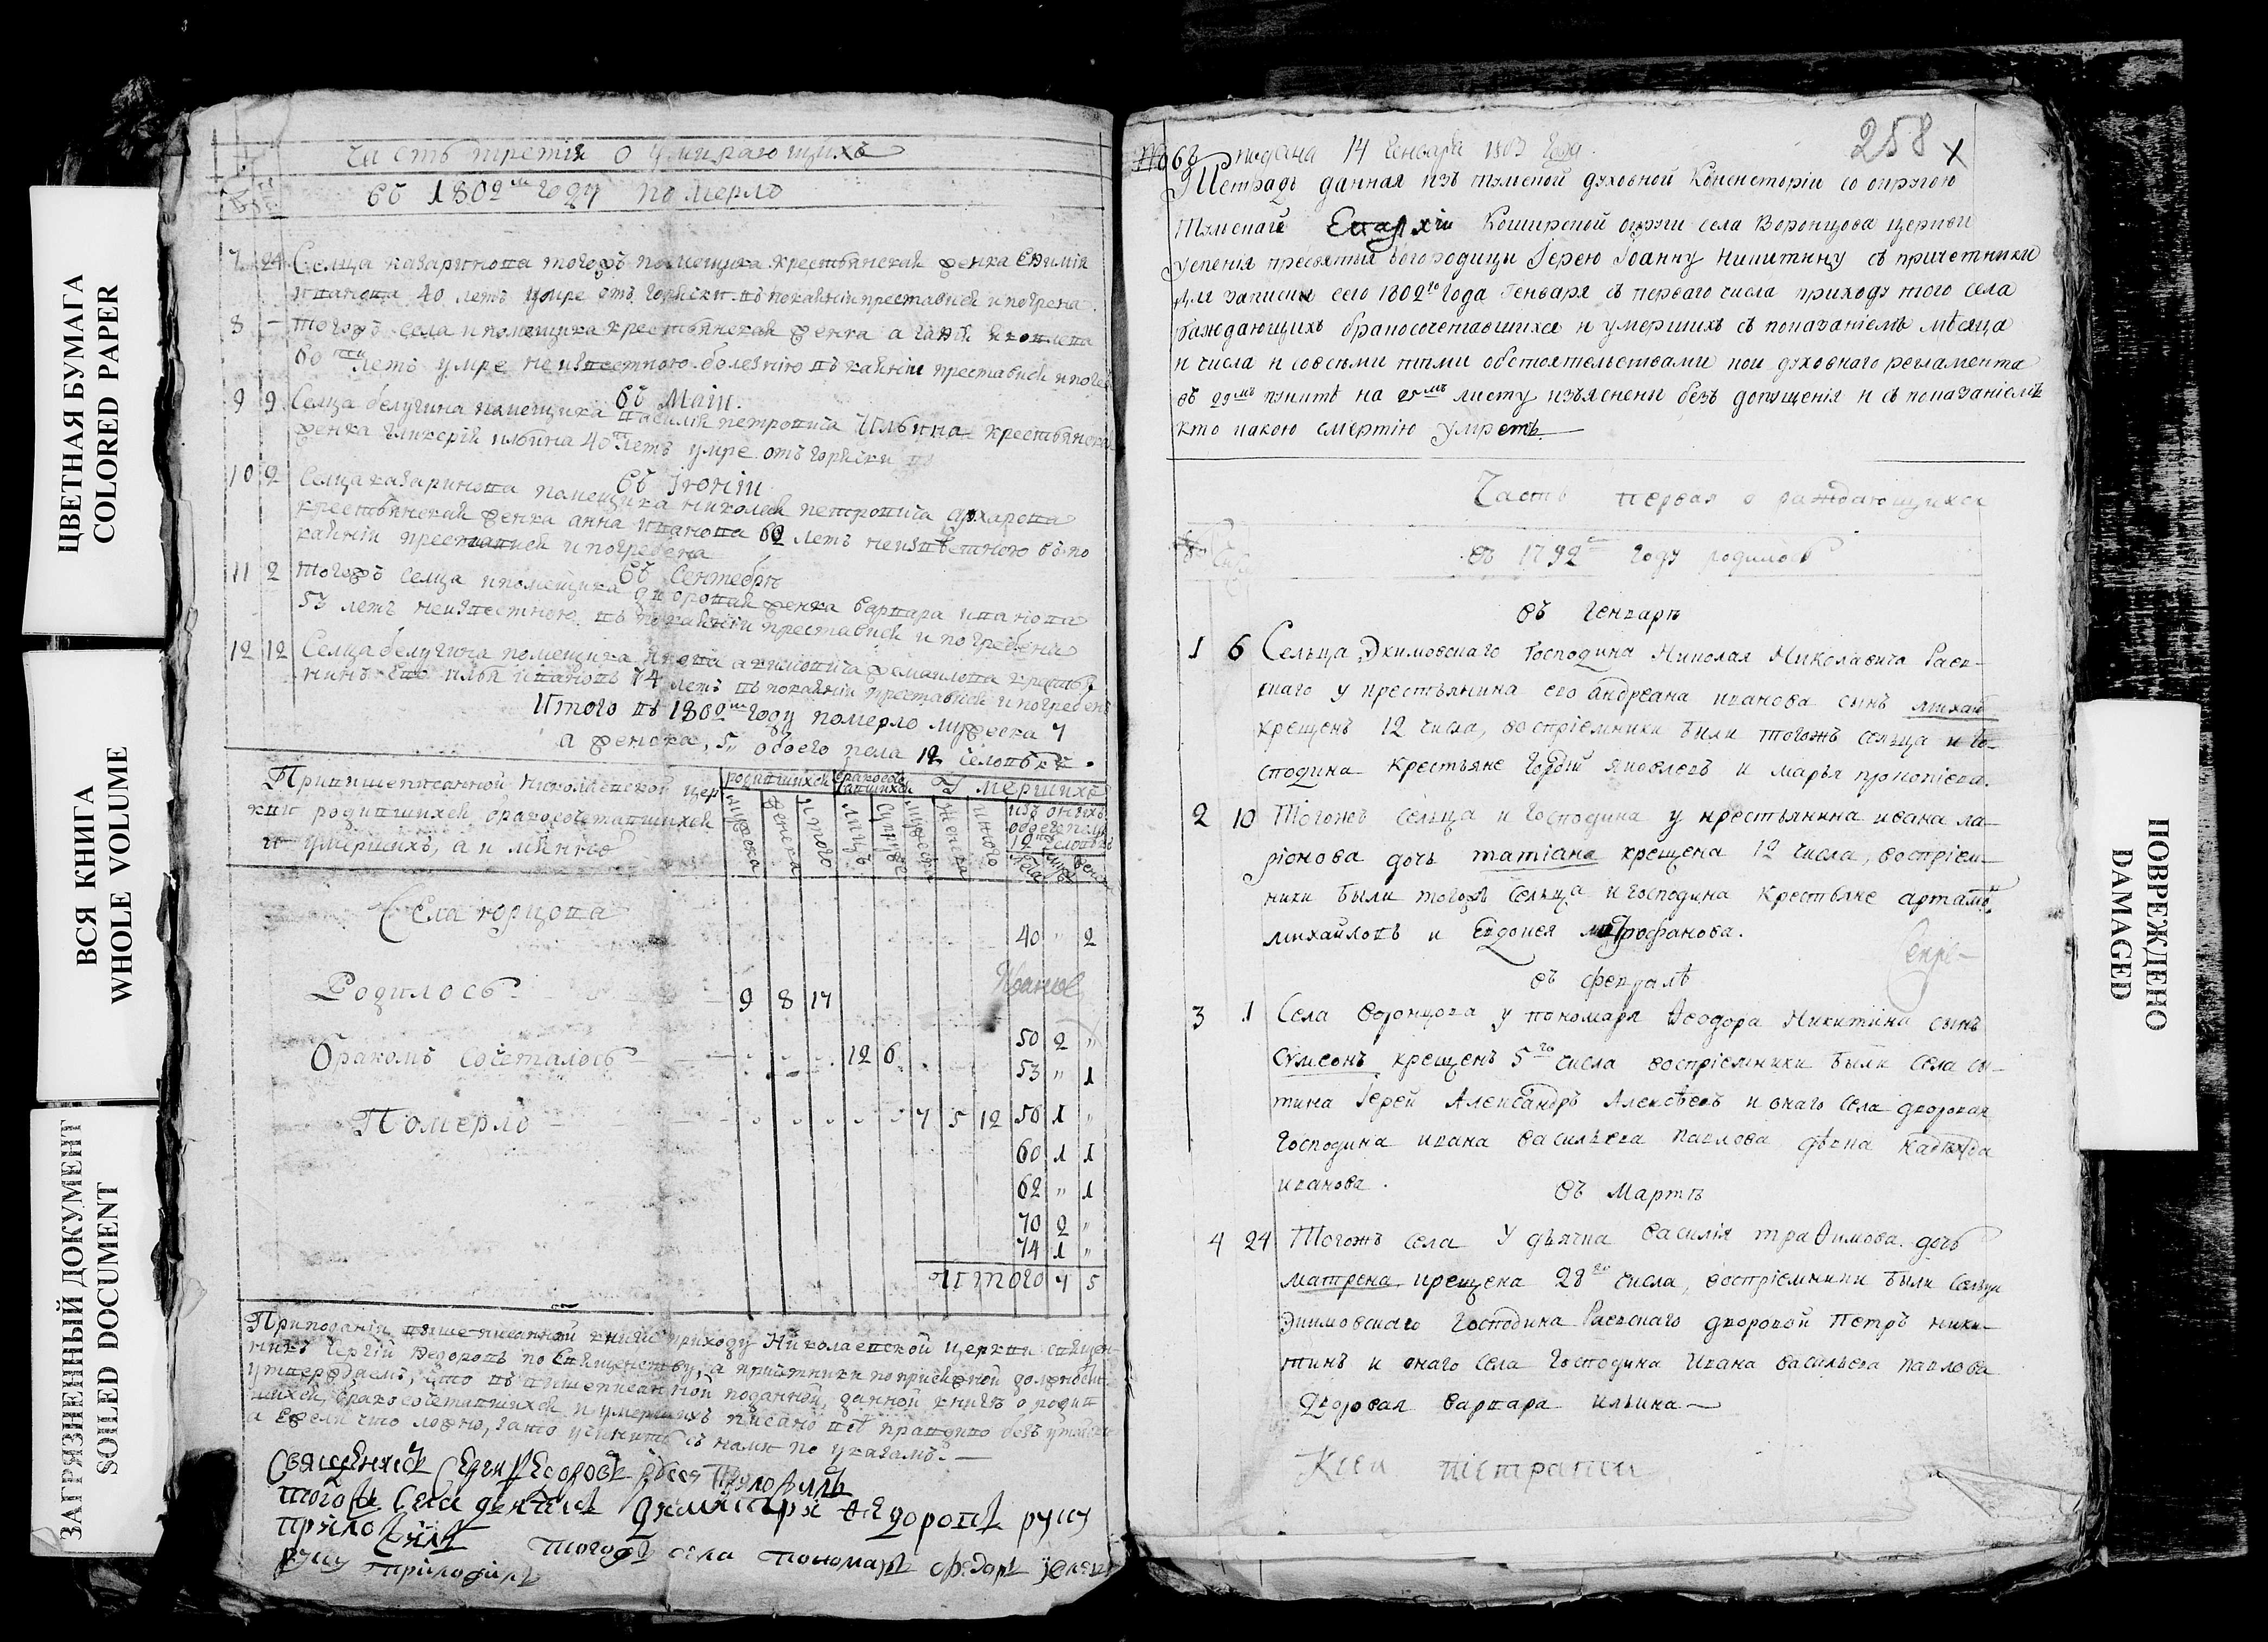 ЦВЕТНАЯ БУМАГА
COLORED PAPER
ВСЯ КНИГА
WHOLE VOLUME
ЗАГРЯЗНЕННЫЙ ДОКУМЕНТ
SOILED DOCUMENT
часть третія о умирающихъ
въ 1802 году померло
7 24 Селца казаринова тогожъ помещика крестьянская женка Евимія
иванова 40 летъ умре отъ горячки въ покаяніи преставися и погребена
8 – тогожъ села и помещика крестьянская женка агафія яковлева
60 летъ умре неизвестною болезнію въ каяніи преставися и погре
въ Маіи.
9 9 Селца белугина помещика василія петровича Ильина крестьянска
женка гликерія ильина 40 летъ умре отъ горячки
въ Іюніи
10 2 Селца казаринова помещика николая петровича архарова
крестьянская женка анна иванова 62 летъ неизвестного въ по
каяніи преставися и погребена
въ Сентебрѣ
11 2 тогожъ селца и помещика дворовая женка варвара иванова
53 летъ неизвестною въ покаяніи преставися и погребена
12 12 Селца белугина помещика якова акимовича
илья ивановъ 74 летъ въ покаяніи преставися и погребенъ
Итого въ 1802 году померло мужеска 7
а женска 5 обоего пола 12 человекъ.
Привышеписанной николаевской цер
кви родившихся бракосочетавшихся
и умершихъ, а имянно
родившихся бракосочетавшихся Умершихъ
мужеска женска итого лицъ мужеска женска итого изъ онихъ обоего пола 12 человекъ
Села юрцова
40 " 2
Родилось 9 8 17
50 2 "
Бракомъ сочеталось 12 6
53 " 1
Померло 7 5 12 50 1 "
60 1 1
62 " 1
70 2 "
74 1 "
Итого 7 5
Приподаніи вышеписанной книге приходу Николаевской церкви священ
никъ Сергій Федоровъ по священству, а причтники по присяжной должности
утверждаемъ, что въ вышеписанной поданной, данной книге о родив
шихся, бракосочетавшихся и умершихъ писано всё правдиво безъ утайки
а ежели что ложно, зато учинить съ нами по указамъ. —
Священникъ Сергій Федоровъ руку приложилъ
тогожъ села дьячекъ Димитрій Федоровъ руку
приложилъ тогожъ села пономарь Федоръ
руку приложилъ
подана 14 Генваря 1803 года
258
Тетрадь данная изъ тульской духовной Консисторіи со округою
тульскаго Епархіи Коширской округи села Воронцова церкви
успенія пресвятыя богородицы Іерею Іоанну Никитину съ причетники
для записки сего 1802го года Генваря съ перваго числа приходу того села
раждающихъ бракосочетавшихся и умершихъ съ показаніемъ мѣсяца
и числа и совсѣми тѣми обстоятельствами кои духовнаго регламента
въ 29мъ пунктѣ на 25мъ листу изъяснены безъ допущенія и съ показаніемъ
кто какою смертію умретъ.
Часть первая о раждающихся
въ 1792 году родилось
въ Генварѣ
1 6 Сельца Экимовскаго Господина Николая Николаевича Раев-
скаго у крестьянина его андреана иванова сынъ михаи
крещенъ 12 числа, воспріемники были тогожъ сельца и го-
сподина крестьяне Гордѣй яковлевъ и марья прокопіева.
2 10 Тогожъ сельца и господина у крестьянина ивана ла-
ріонова дочь татіана крещена 12 числа, воспріем-
ники были тогожъ сельца и господина крестьяне артамо
михайловъ и Евдокея митрофанова.
въ февралѣ
3 1 Села воронцова у пономаря Ѳеодора Никитина сынъ
Сумеонъ крещенъ 5го числа воспріемники были села си-
тина Іерей Александръ Алексѣевъ и онаго села дворовая
господина ивана васильева павлова дѣвка надежда
иванова.
въ Мартѣ
4 24 Тогожъ села у дьячка василія траѲимова дочь
матрена крещена 28го числа, воспріемники были сельца
Экимовскаго господина Раевскаго дворовой петръ ники-
тинъ и онаго села господина ивана васильева павлова
дворовая варвара ильина —
ПОВРЕЖДЕНО
DAMAGED